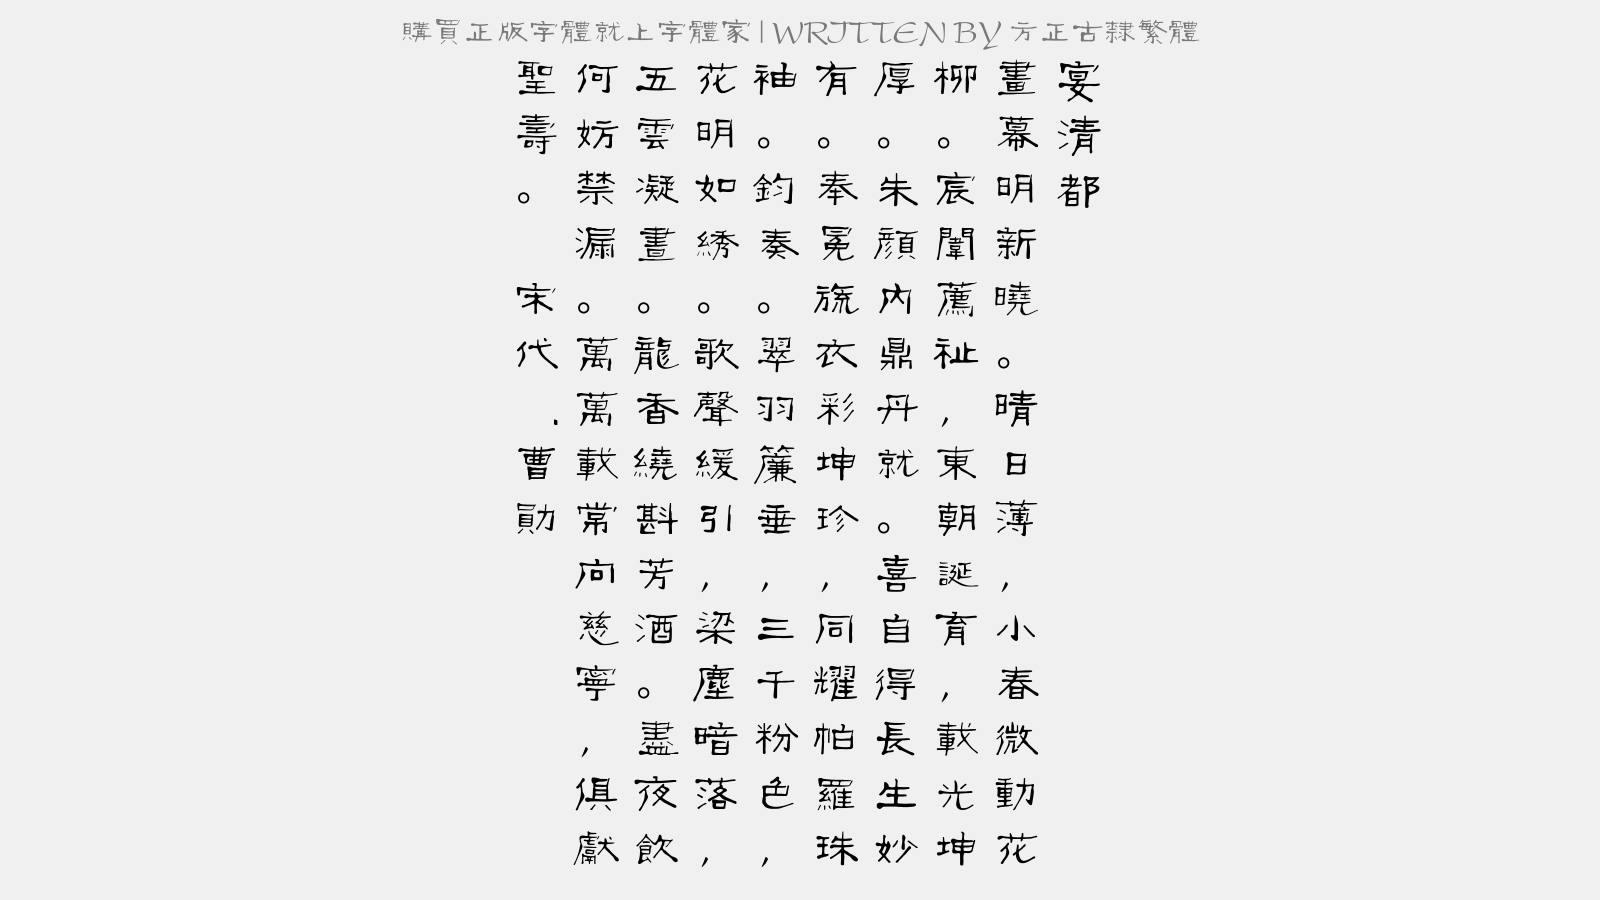 購買正版字體就上字體家|WRITTEN BY 方正古隸繁體
宴清都
畫幕明新曉。晴日薄,小春微動花
柳。宸闈薦祉,東朝誕育,載光坤
厚。朱顏內鼎丹就。喜自得長生妙
有。奉冕旒衣彩坤珍,同耀帕羅珠
袖。鈞奏。翠羽簾垂,三千粉色,
花明如綉。歌聲緩引,梁塵暗落,
五雲凝晝。龍香繞斟芳酒。盡夜飲
何妨禁漏。萬萬載常向慈寧,俱獻
聖壽。 宋代.曹勛